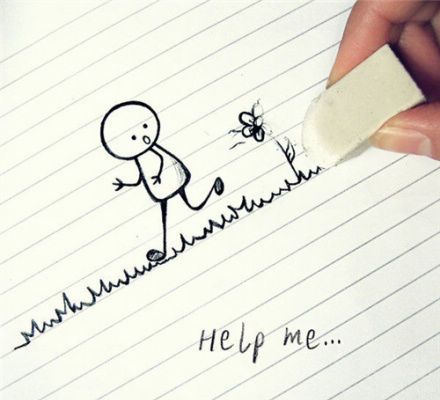 Help me...